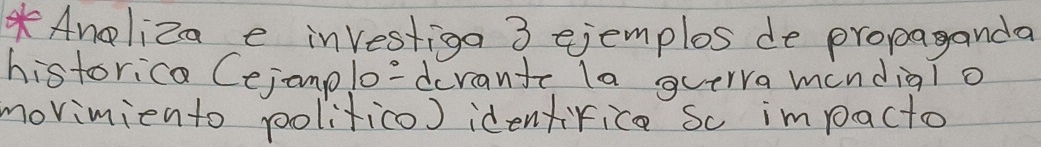 * Analiza e investiga 3 ejemplos de propaganda
historica (ejemplo:- durante la guerra mundial o
movimiento politico) identifica su impacto